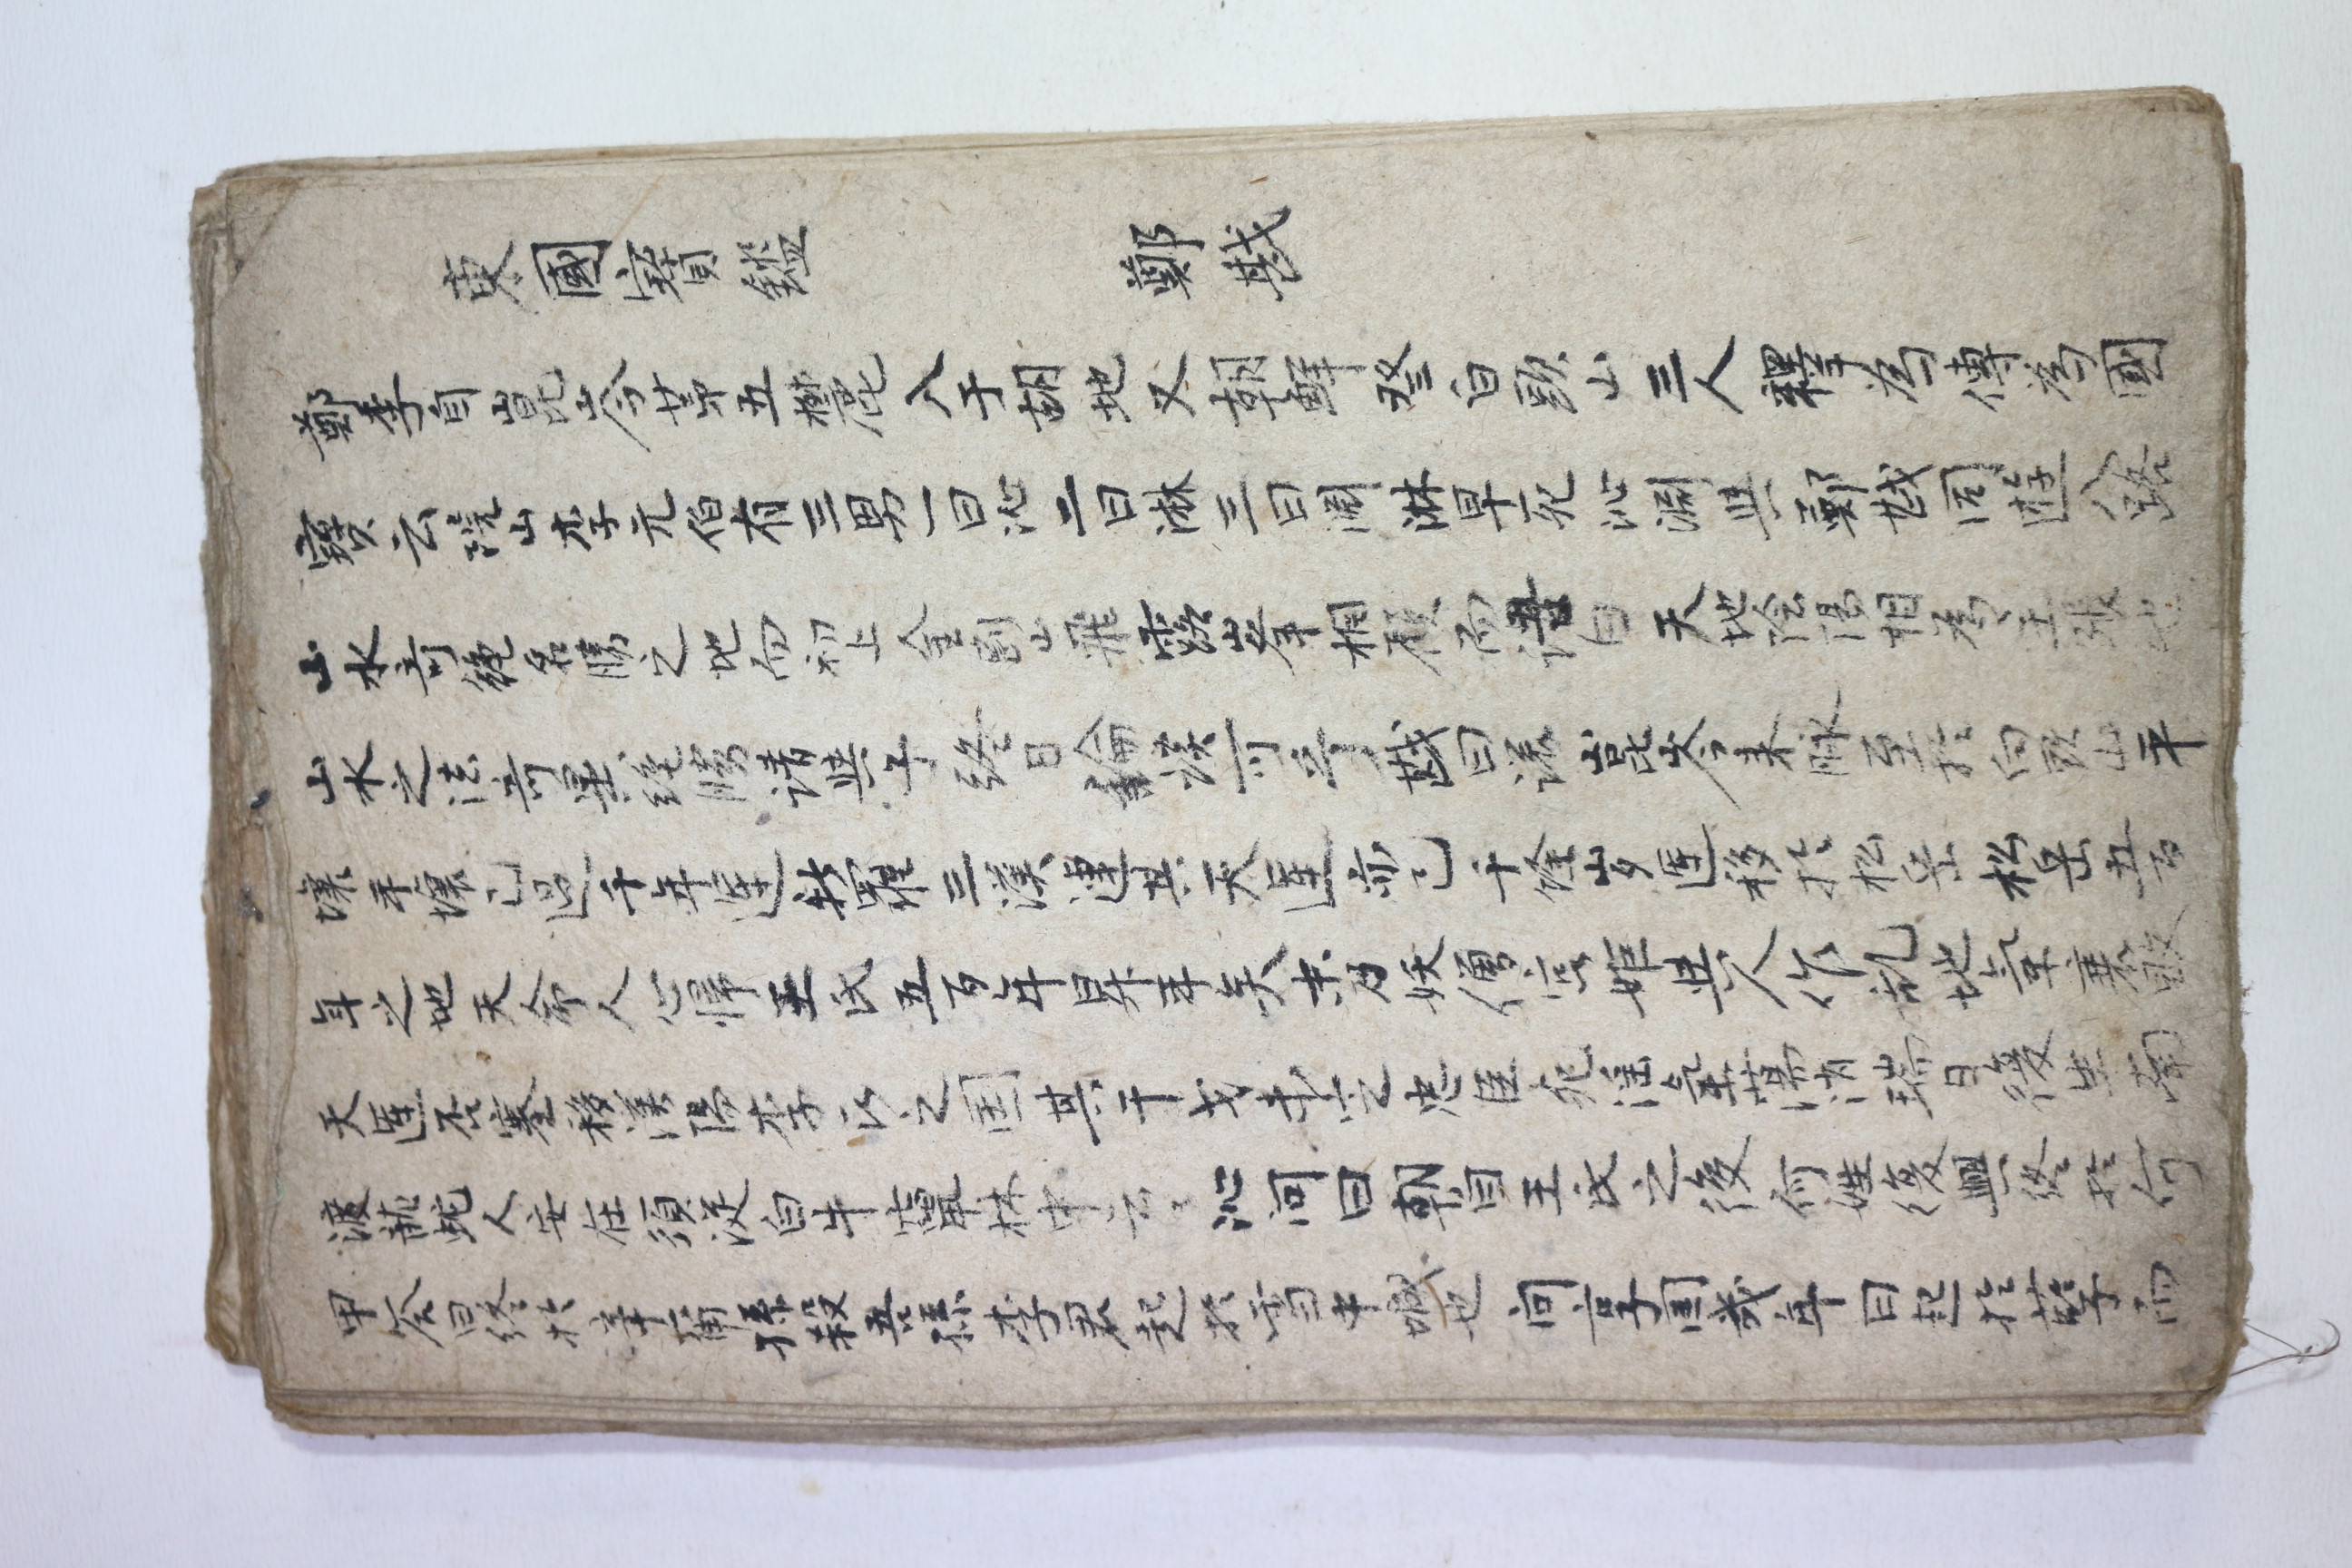 東國寶鑑 鄭戡
鄭李自崑岺苐五麓入于胡地又朝鮮登白頭山三人釋為傳為國
寶云院山李元伯有三男一曰沁二曰淋三曰淵淋早死沁淵與鄭戡同遊八路
山水奇絶名勝之地而初上金剛山飛露峯相顧而語曰天地陰陽相為主張也
山水之法奇異絶勝請與子終日論談可乎戡曰諾崑岺来脉至於白頭山平
壤平壤已過千年運新羅三漢運其天運亦已千餘岁運移於松岳松岳五百
年之地天命人心帰王氏五百年昇平矣末乃妖僧宮姫與人作乱地氣衰敗
天運否塞移漢陽李氏之国其干戈未定忠臣死淫氣蕩消瑞日復生南
渡龍蛇人安在須從白牛奔林中云〻沁问曰朝自王氏之後何姓復興終於何
甲答曰終於辛爾孫殺吾孫李君起於雪中城也 问享国幾年曰起於孽而